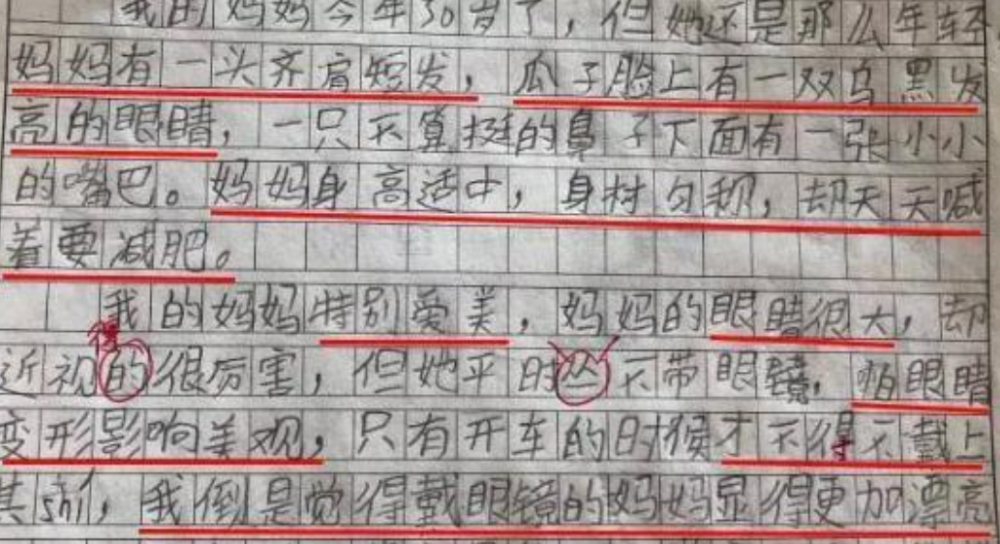 我的妈妈今年30岁了，但她还是那么年轻
妈妈有一头齐肩短发，瓜子脸上有一双乌黑发
高的眼睛，一只不算挺的鼻子下面有一张小小
的嘴巴。妈妈身高适中，身材匀称，却天天喊
着要减肥。
我的妈妈特别爱美，妈妈的眼睛很大，却
得
近视的很厉害，但她平时丛不带眼镜，怕眼睛
变形影响美观，只有开车的时候才不得不戴上
其shi，我倒是觉得戴眼镜的妈妈显得更加漂亮